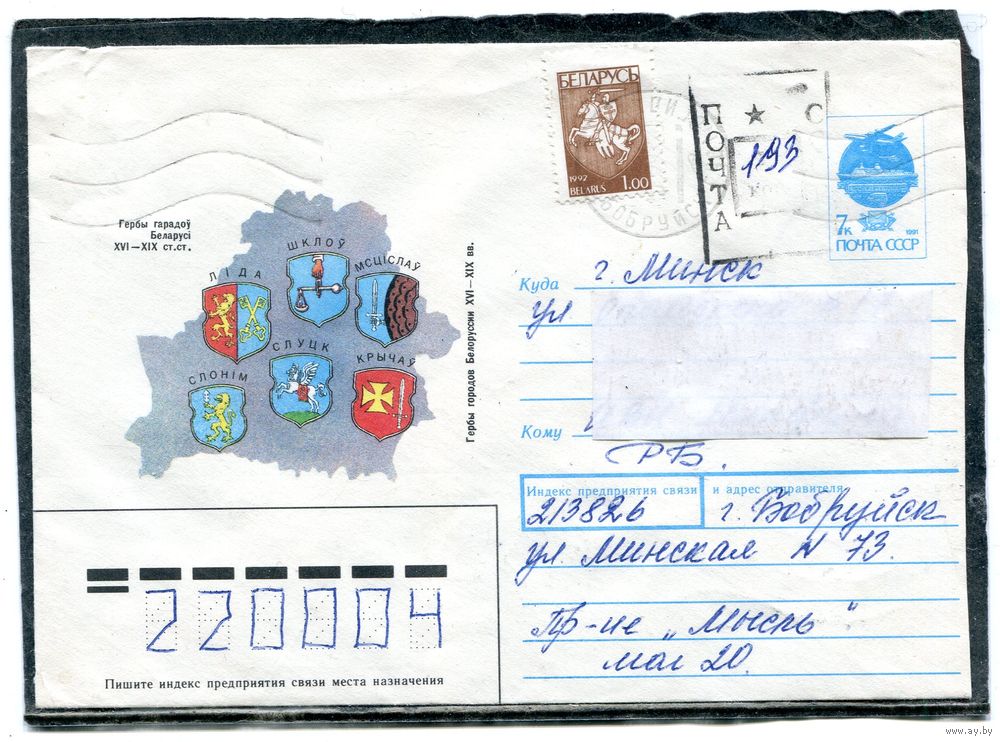 БЕЛАРУСЬ
1992
BELARUS 1.00
БОБРУЙС
ПОЧТА
193
7к
1991
ПОЧТА СССР
Гербы гарадоў
Беларусі
XVI—XIX ст.ст.
ШКЛОЎ
ЛІДА
МСЦІСЛАЎ
СЛУЦК
КРЫЧАЎ
СЛОНІМ
Гербы городов Белоруссии XVI—XIX вв.
Куда г. Минск
ул
Кому
РБ.
Индекс предприятия связи и адрес отправителя
213826 г. Бобруйск
ул. Минская N 73.
Пр-ие „Мысль"
маг 20.
220004
Пишите индекс предприятия связи места назначения
www.ay.by